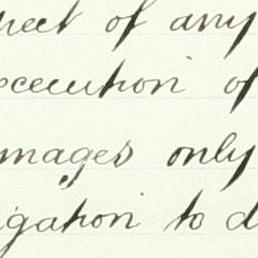 pect of any
execution of
mages only
igation to d